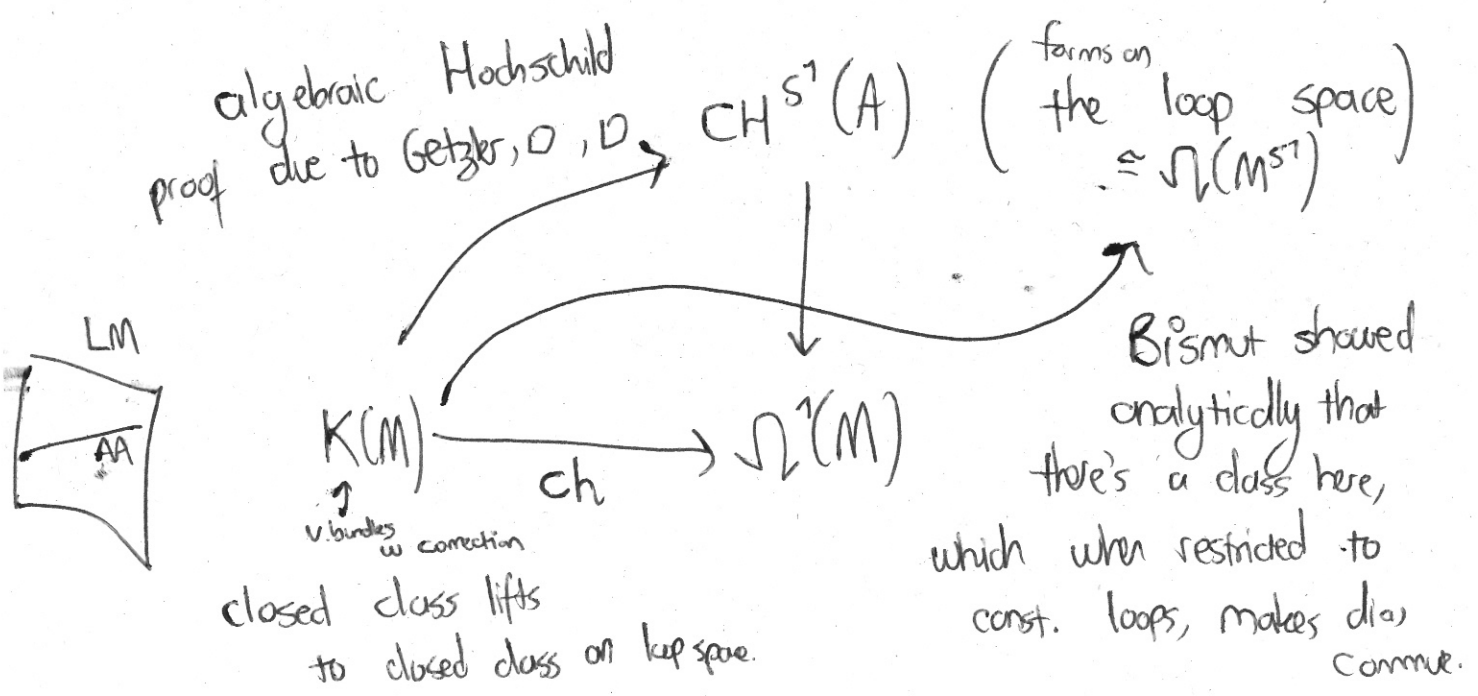 algebraic Hochschild
proof due to Getzler, D, D.
CH^{S^1}(A)
(forms on
the loop space
≅ Ω(M^{S^1}))
LM
AA
K(M)
ch
Ω^1(M)
v. bundles
w connection
closed class lifts
to closed class on loop space.
Bismut showed
analytically that
there's a class here,
which when restricted to
const. loops, makes
commute.